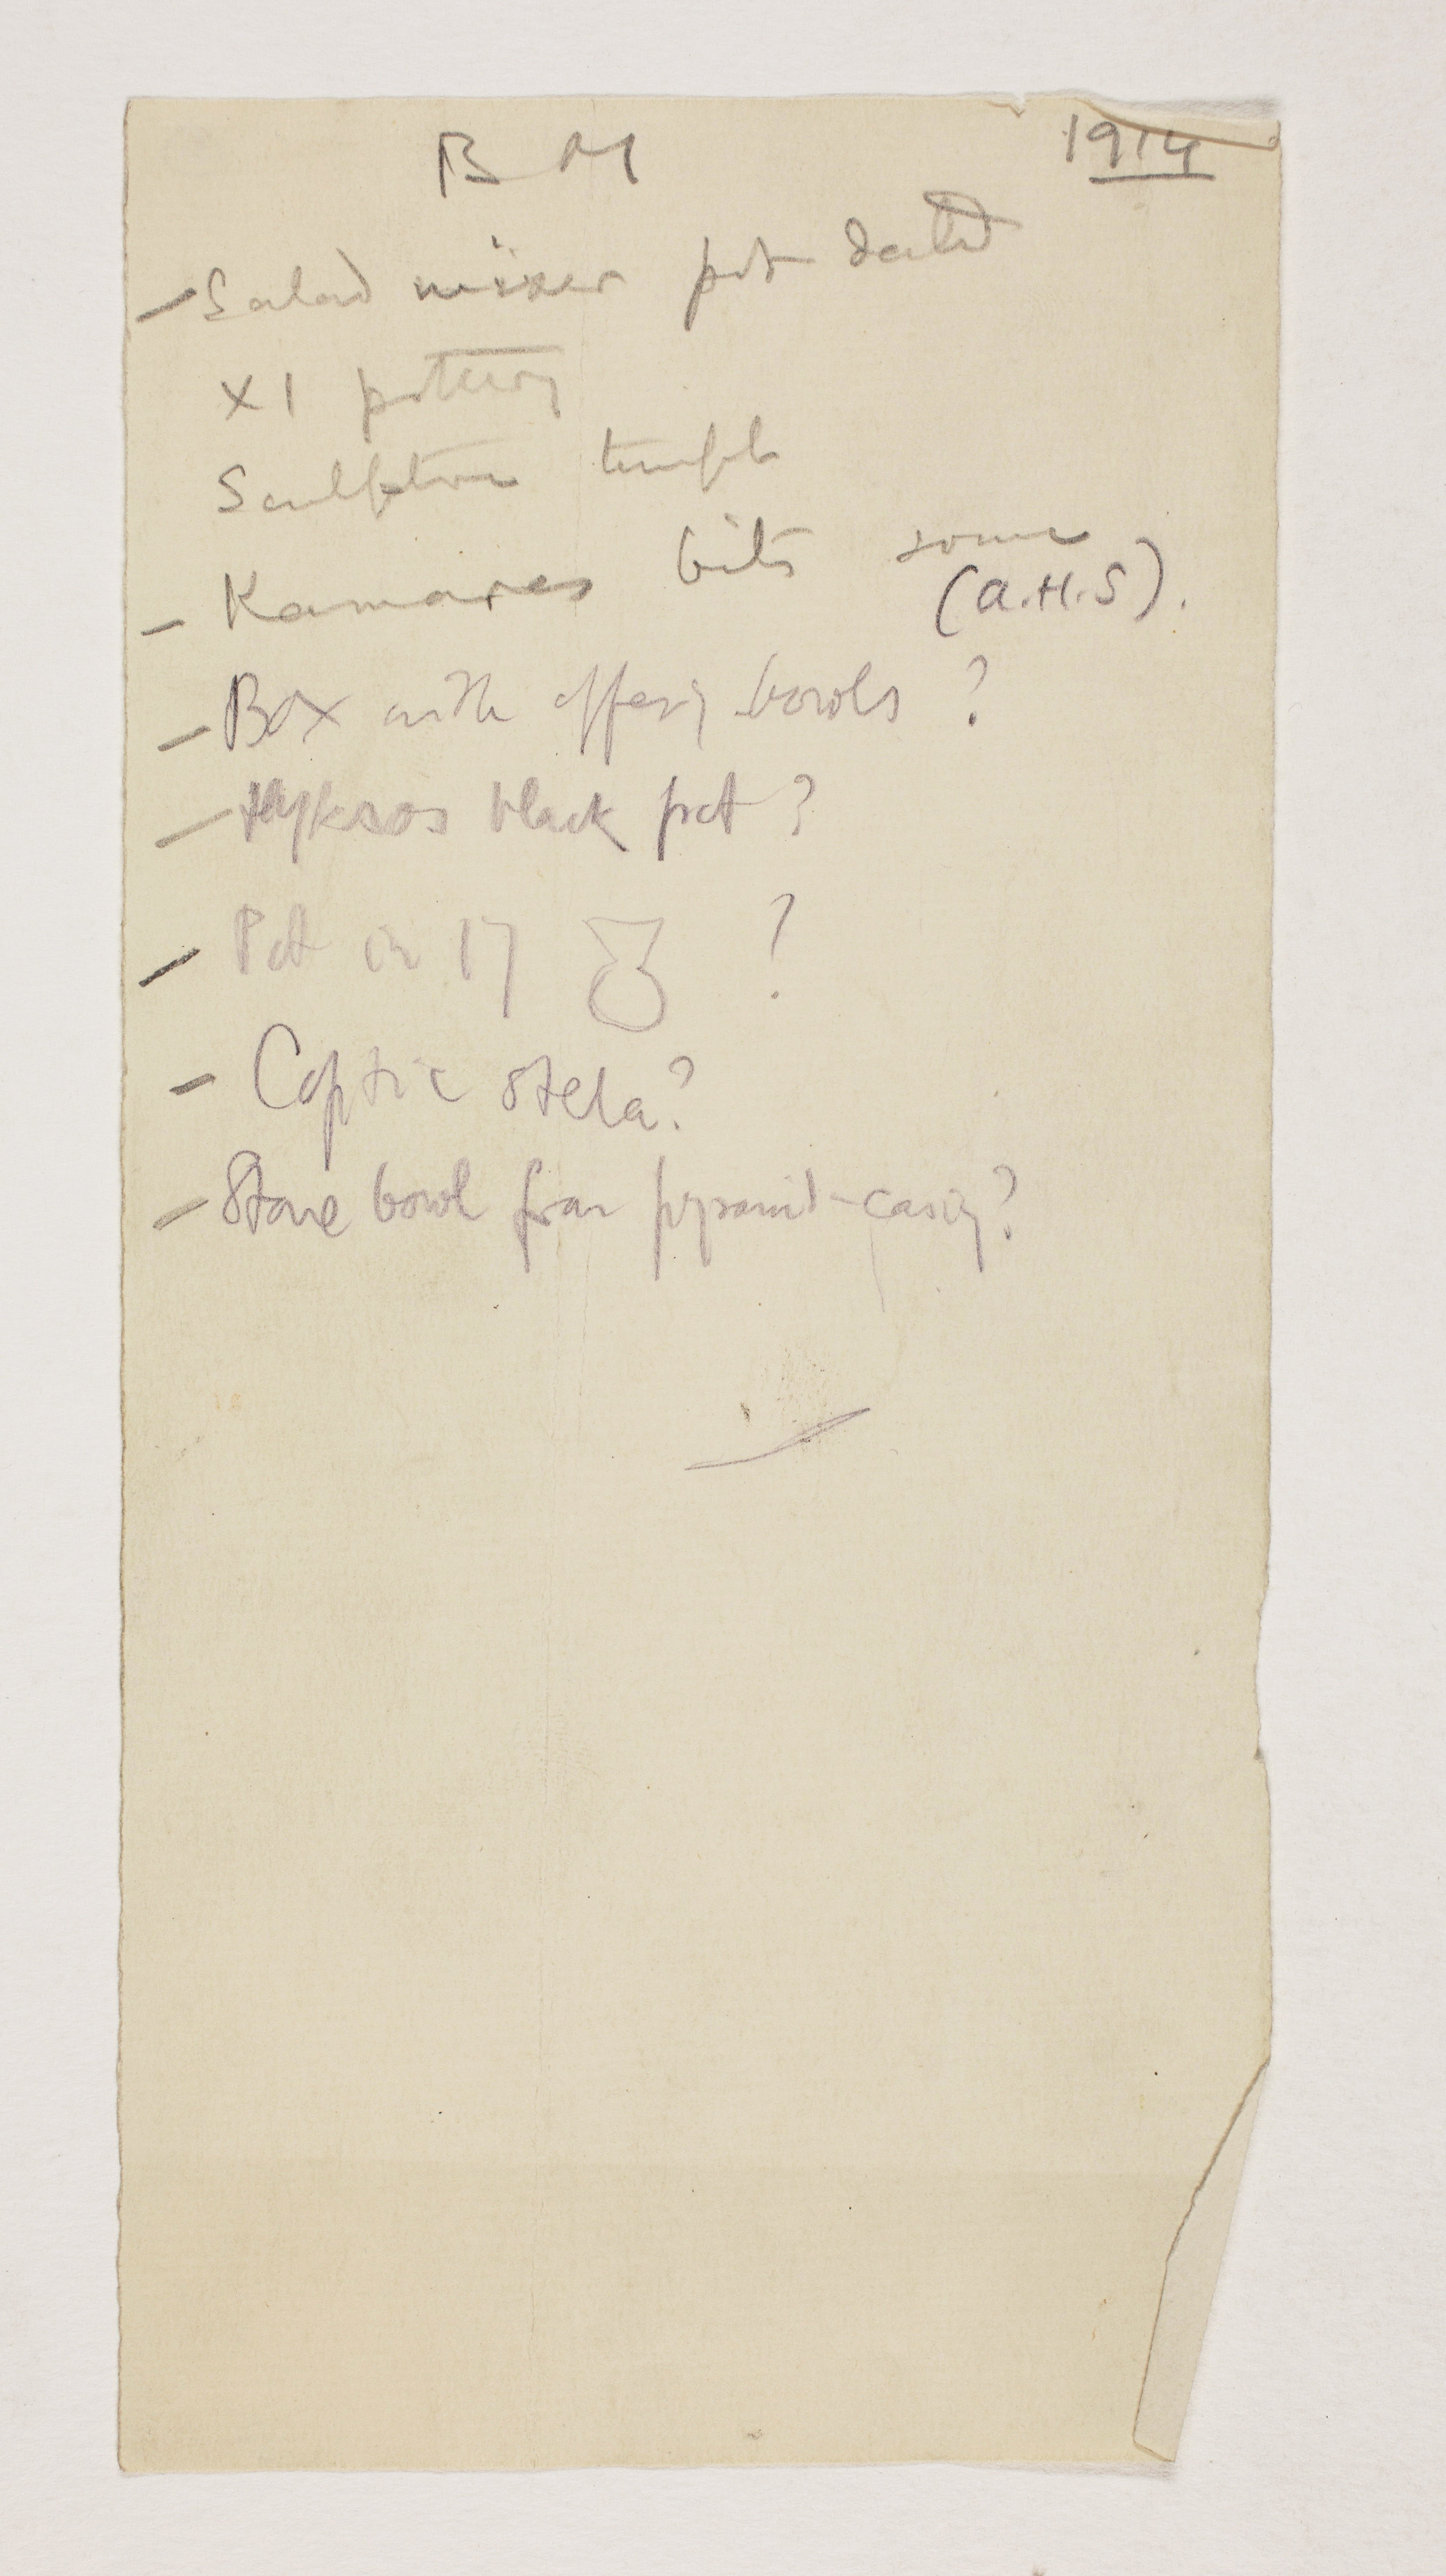 B M 1914
- Salad mixer pot dated
XI pottery
Sculpture temple
- Kamares bits some
(A.H.S).
- Box with offering bowls ?
- Hyksos black pot ?
- Pot in 17 ?
- Coptic stela?
- Stone bowl from pyramid-casing?